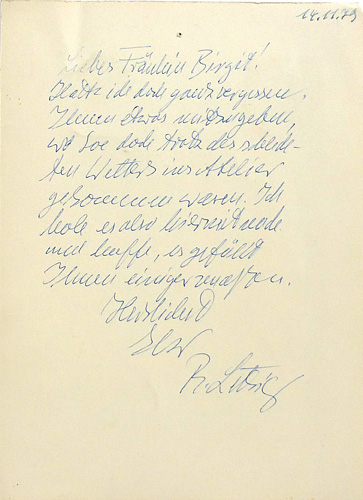 14.11.79
Liebes Fräulein Birgit!
Hatte ich doch ganz vergessen,
Ihnen etwas mitzugeben,
wo Sie doch trotz des schlech-
ten Wetters ins Atelier
gekommen waren. Ich
hole es also hiermit nach
und hoffe, es gefällt
Ihnen einigermaßen.
Herzlichst